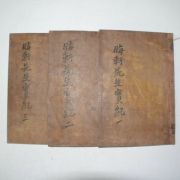 晦軒先生實紀 一
晦軒先生實紀 二
晦軒先生實紀 三